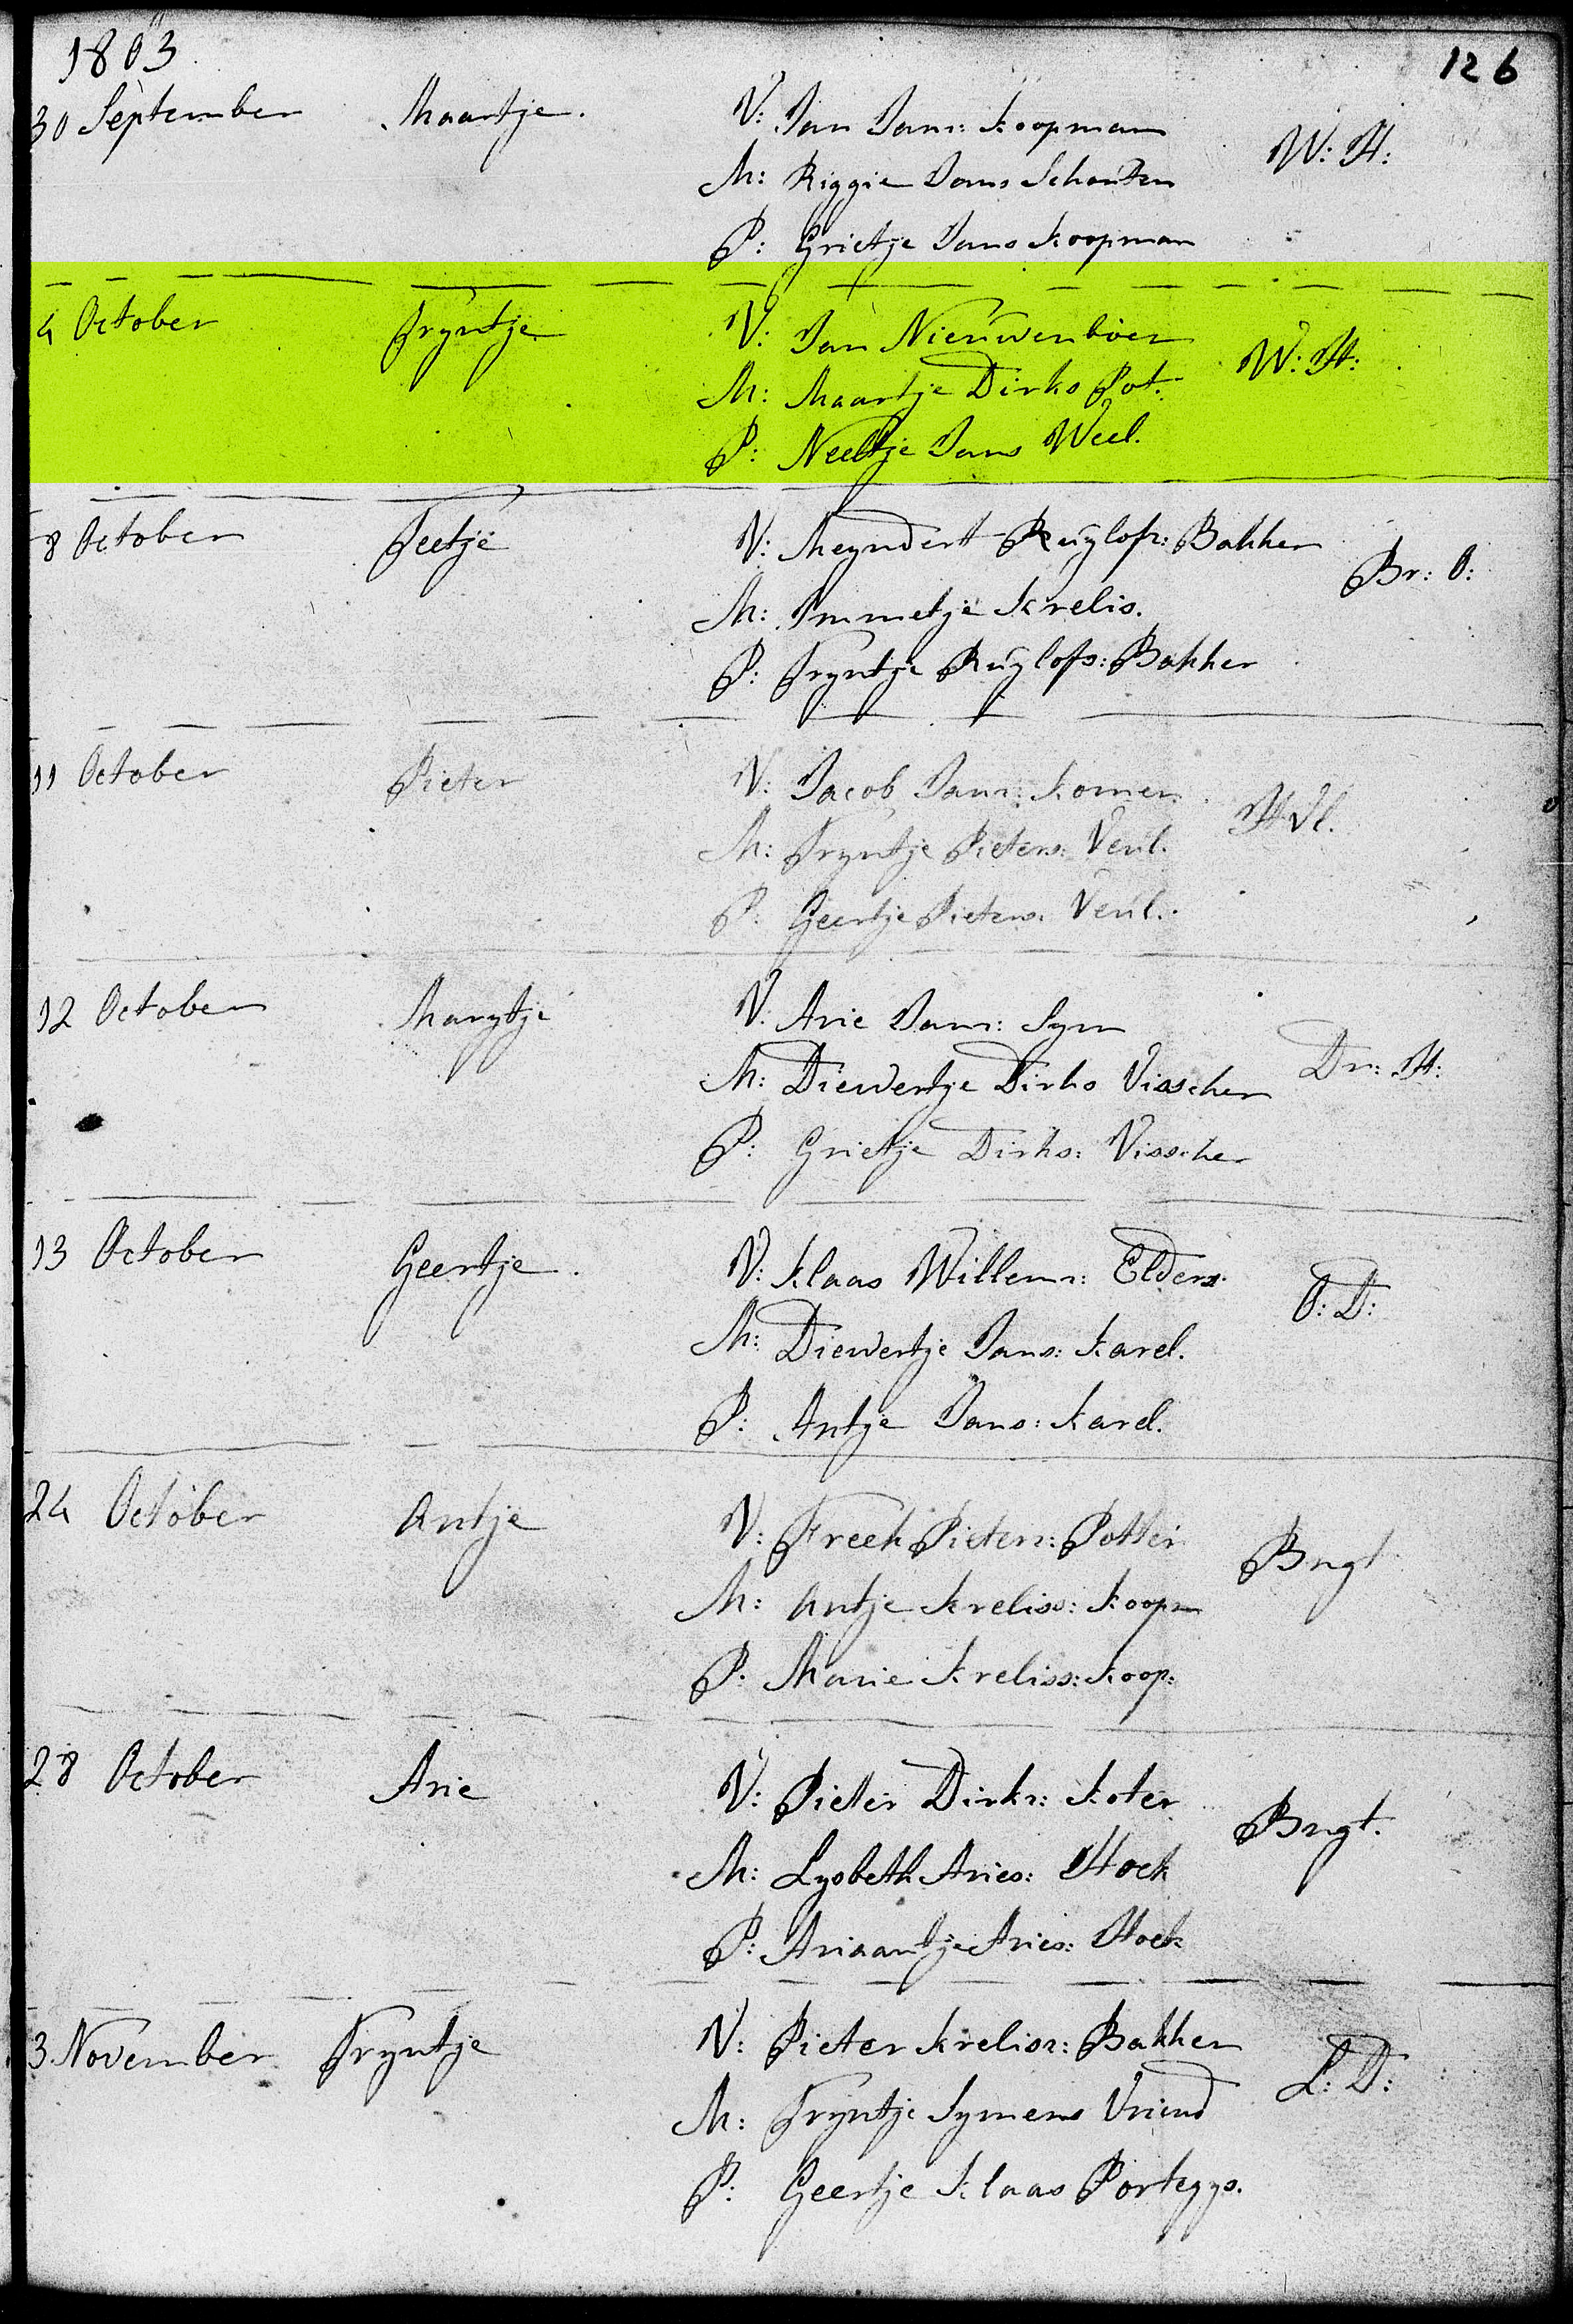 1803
126
30 September Maartje. V: Jan Jans: Koopman W: H:
M: Riggie Jans Schouten
P: Grietje Jans Koopman
4 October Tryntje V: Jan Nieuwenboer W: H:
M: Maartje Dirks Pot.
P: Neeltje Jans Weel.
8 October Teetje V: Meyndert Ruylofs: Bakker Br: O:
M: Immetje Krelis.
P: Tryntje Ruylofs: Bakker
11 October Pieter V: Jacob Jans: Komen H Vl.
M: Tryntje Pieters: Veul.
P: Geertje Pieters: Veul.
12 October Marytje V: Arie Jans: Sym Dr: H:
M: Diewertje Dirks Visscher
P: Grietje Dirks: Visscher
13 October Geertje. V: Klaas Willems: Elders. O: D:
M: Diewertje Jans: Karel.
P: Antje Jans: Karel.
24 October Antje V: Freek Pieters: Potter Bngt
M: Antje Kreliss: Koopm
P: Marie Kreliss: Koop:
28 October Arie V: Pieter Dirks: Koter Bngt.
M: Lysbeth Aries: Hoek
P: Ariaantje Aries: Hoek
3 November Tryntje V: Pieter Kreliss: Bakker L: D:
M: Tryntje Symens Vriend
P: Geertje Klaas Portegys.